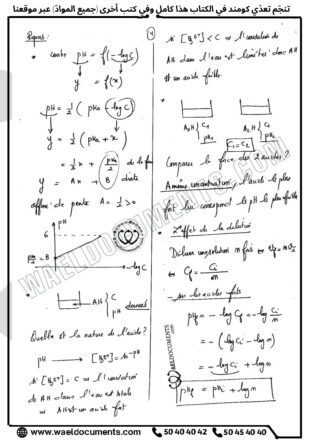 تنجّم تعدّي كومند في الكتاب هذا كامل وفي كتب أخرى (جميع الموادّ) عبر موقعنا
4
pH = f(-log C)
y = f(x)
pH = 1/2 (pKa - log C)
y = 1/2 (pKa + x)
= 1/2 x + pKa/2
y = Ax + B
droite
de pente A = 1/2 > 0
pH
6
pKa/2 = B
-log C
AH { C
pH
données
Quelle est la nature de l'acide?
pH → [H3O+] = 10^-pH
si [H3O+] = C ⇒ l'ionisation
de AH dans l'eau est totale
⇒ AH est un acide fort
si [H3O+] < C ⇒ l'ionisation de
AH dans l'eau est limitée donc AH
est un acide faible.
A1H { C1
pH1
A2H { C2
pH2
C1 = C2
Comparer la force des 2 acides?
A même concentration, l'acide le plus
fort lui correspond le pH le plus faible
L'effet de la dilution
Cf = Ci/n
pHf = -log Cf = -log Ci/n
= -(log Ci - log n)
= -log Ci + log n
pHf = pHi + log n
WAELDOCUMENTS.COM
WAELDOCUMENTS
www.waeldocuments.com
50 40 40 42 / 50 45 40 40